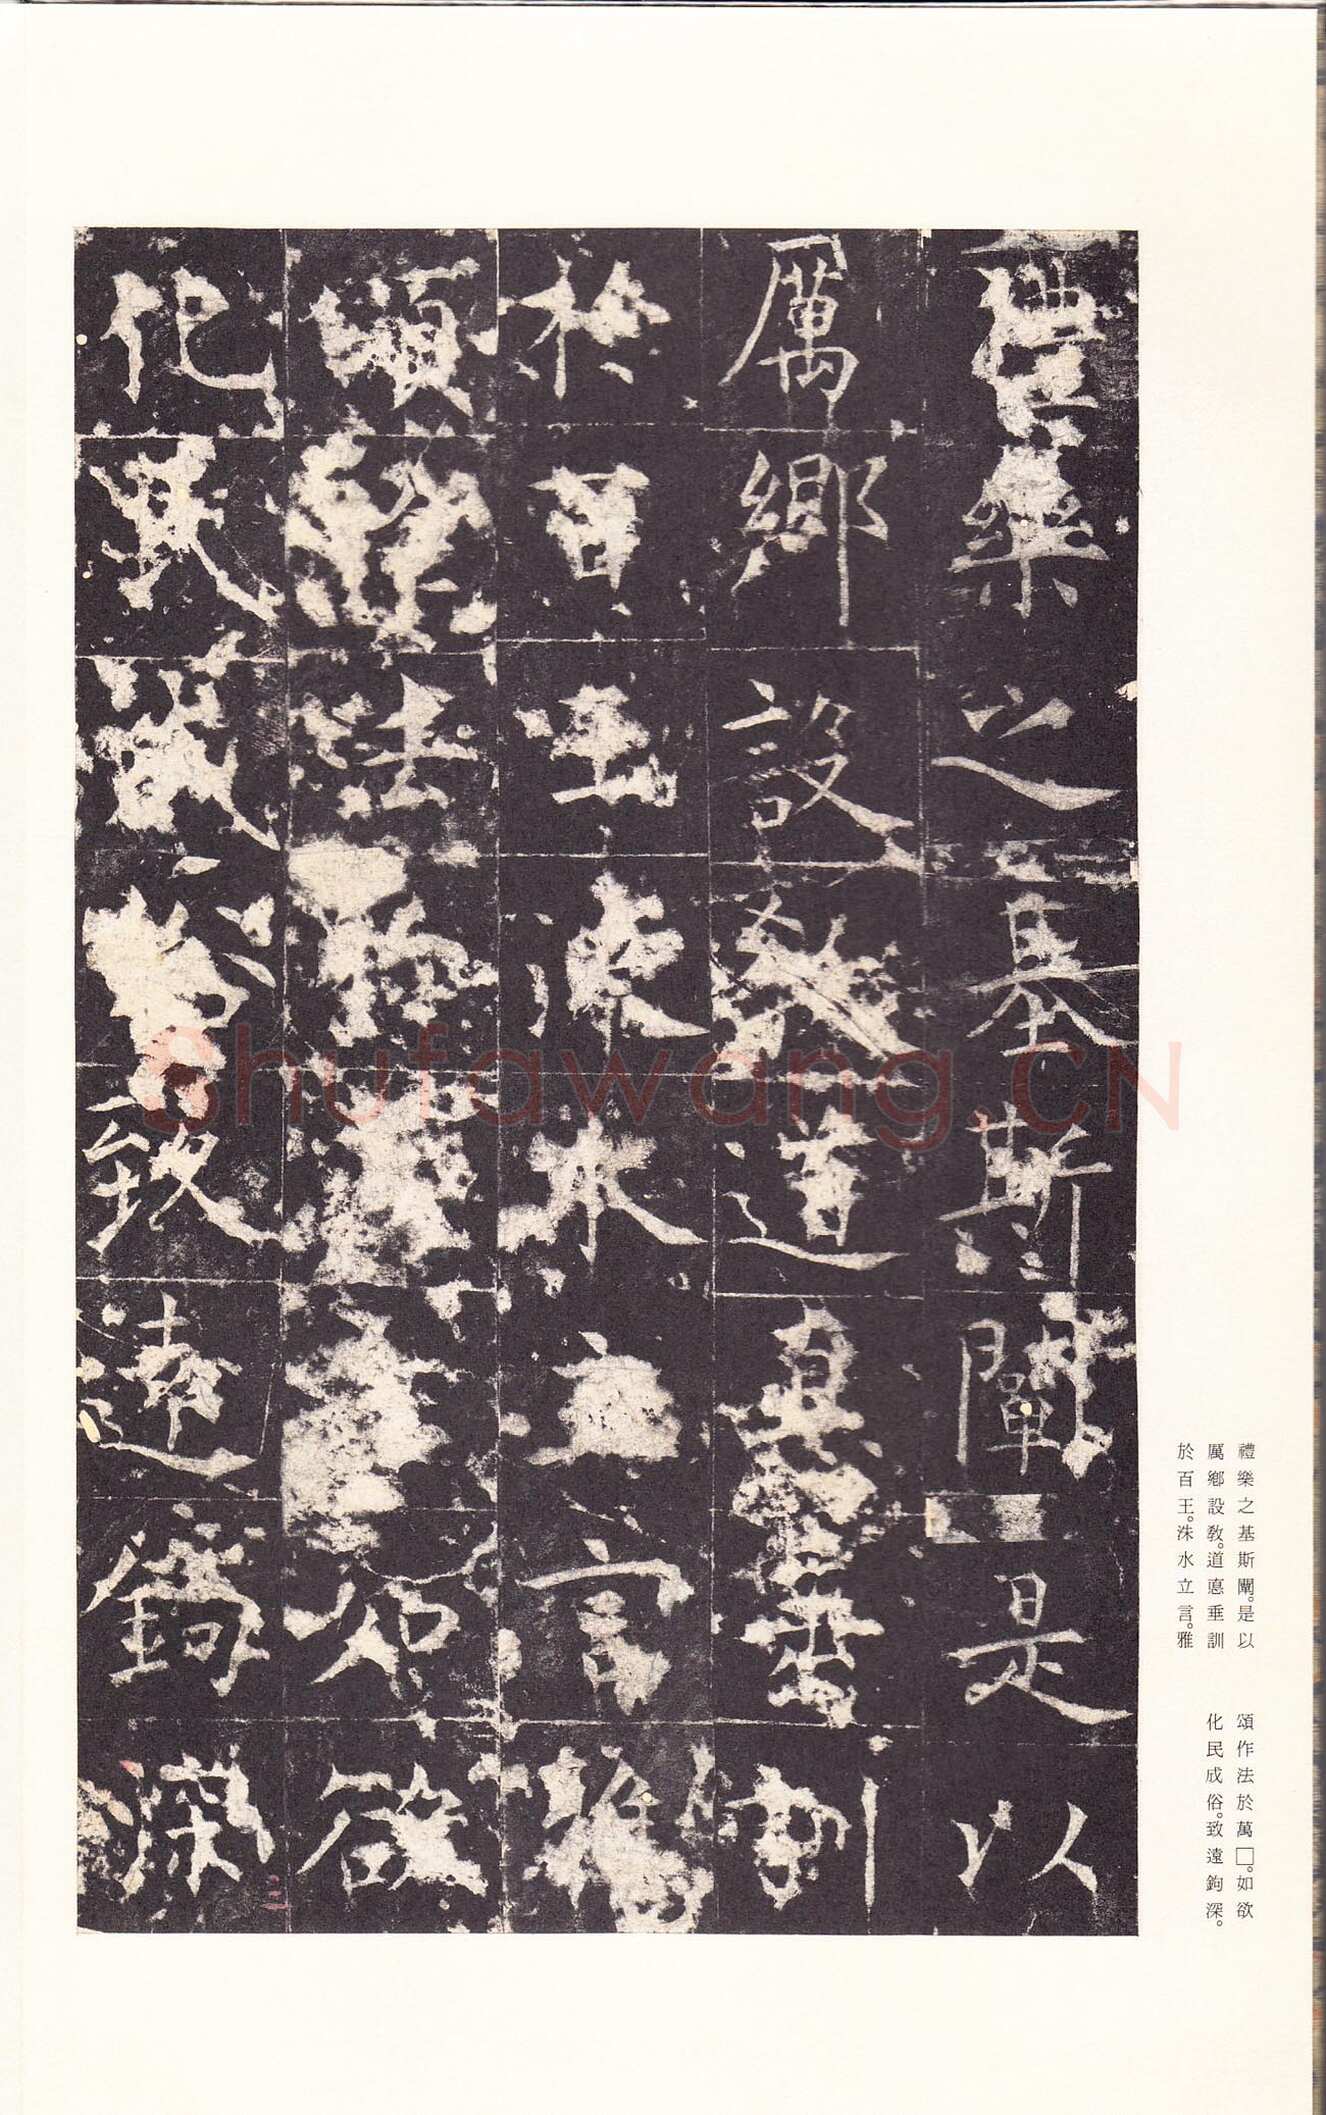 禮樂之基斯闡是以
厲鄉設教道悳垂訓
於百王洙水立言雅
頌作法於萬如欲
化民成俗致遠鉤深
三
禮樂之基斯闡。是以
厲鄉設敎。道悳垂訓
於百王。洙水立言。雅
頌作法於萬□。如欲
化民成俗。致遠鉤深。
Shufawang.CN